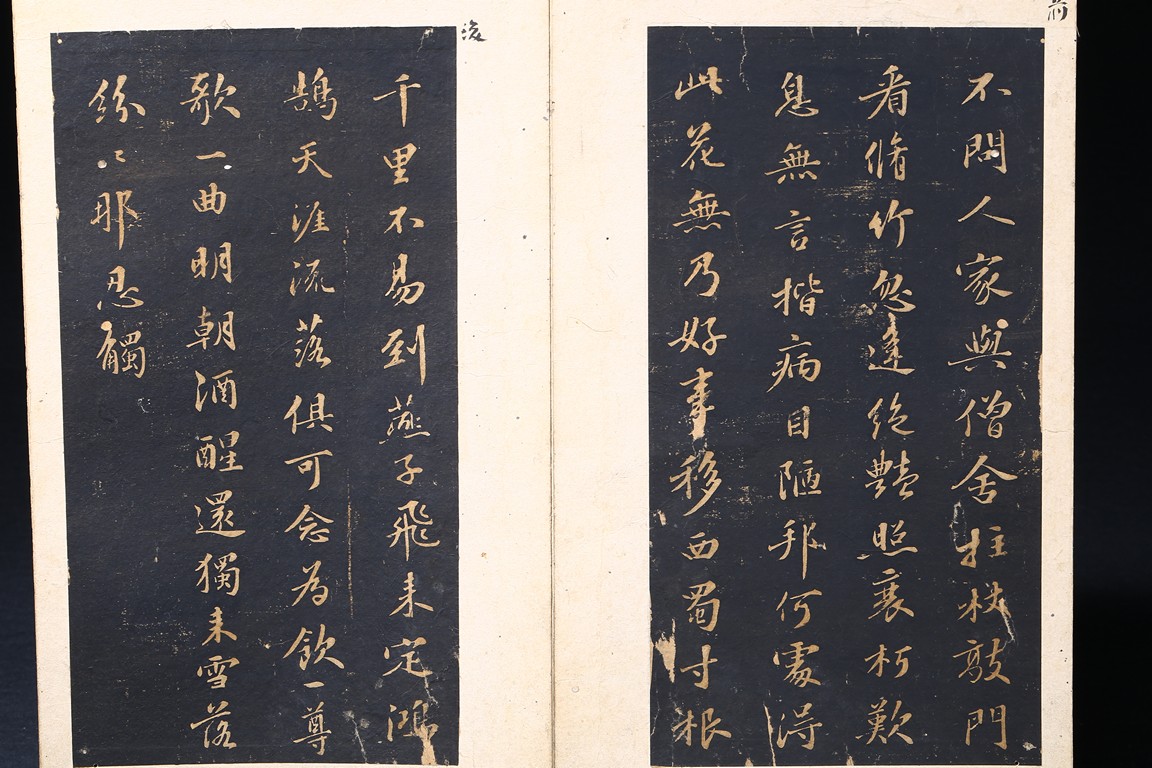 前
不問人家與僧舍拄杖敲門
看脩竹忽逢絕艷照衰朽歎
息無言揩病目陋邦何處得
此花無乃好事移西蜀寸根
後
千里不易到燕子飛來定鴻
鵠天涯流落俱可念為飲一尊
歌一曲明朝酒醒還獨來雪落
紛〻那忍觸